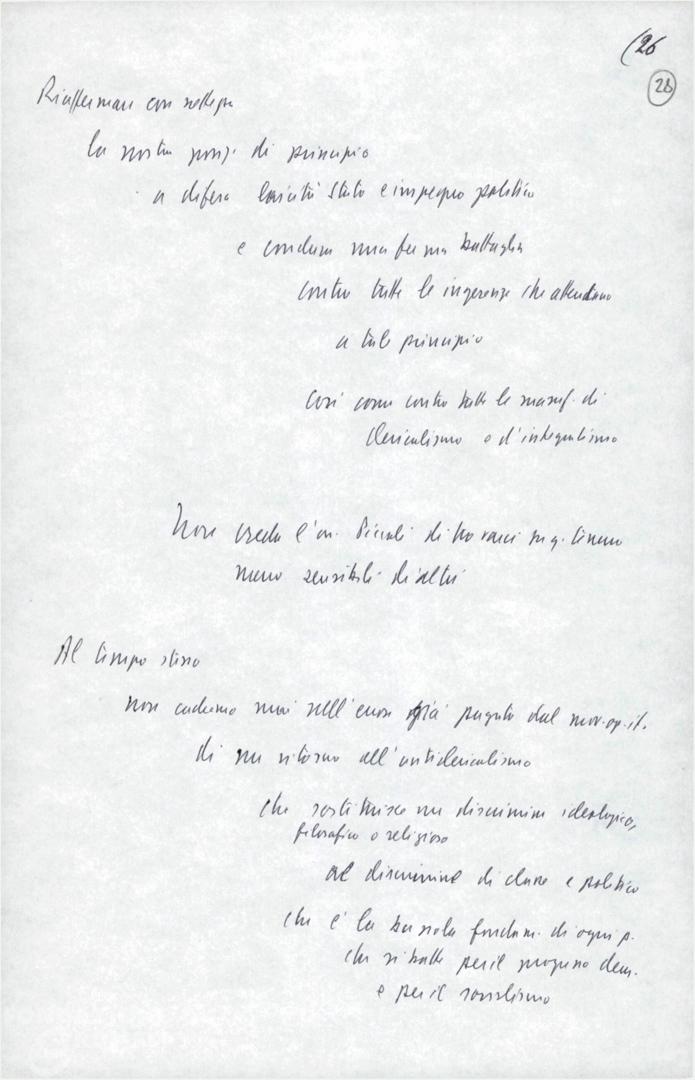 (26
28
Riaffermare con nettezza
la nostra posiz. di principio
a difesa laicità Stato e impegno politico
e condurre una ferma battaglia
contro tutte le ingerenze che attentano
a tale principio
così come contro tutte le manif. di
clericalismo o d'integralismo
Non creda l'on. Piccoli di trovarci su q. terreno
meno sensibili di altri
Al tempo stesso
non cadremo mai nell'errore già pagato dal mov. op. it.
di un ritorno all'anticlericalismo
che sostituisce un discrimine ideologico,
filosofico o religioso
al discrimine di classe e politico
che è la bussola fondam. di ogni p.
che si batte per il progresso dem.
e per il socialismo